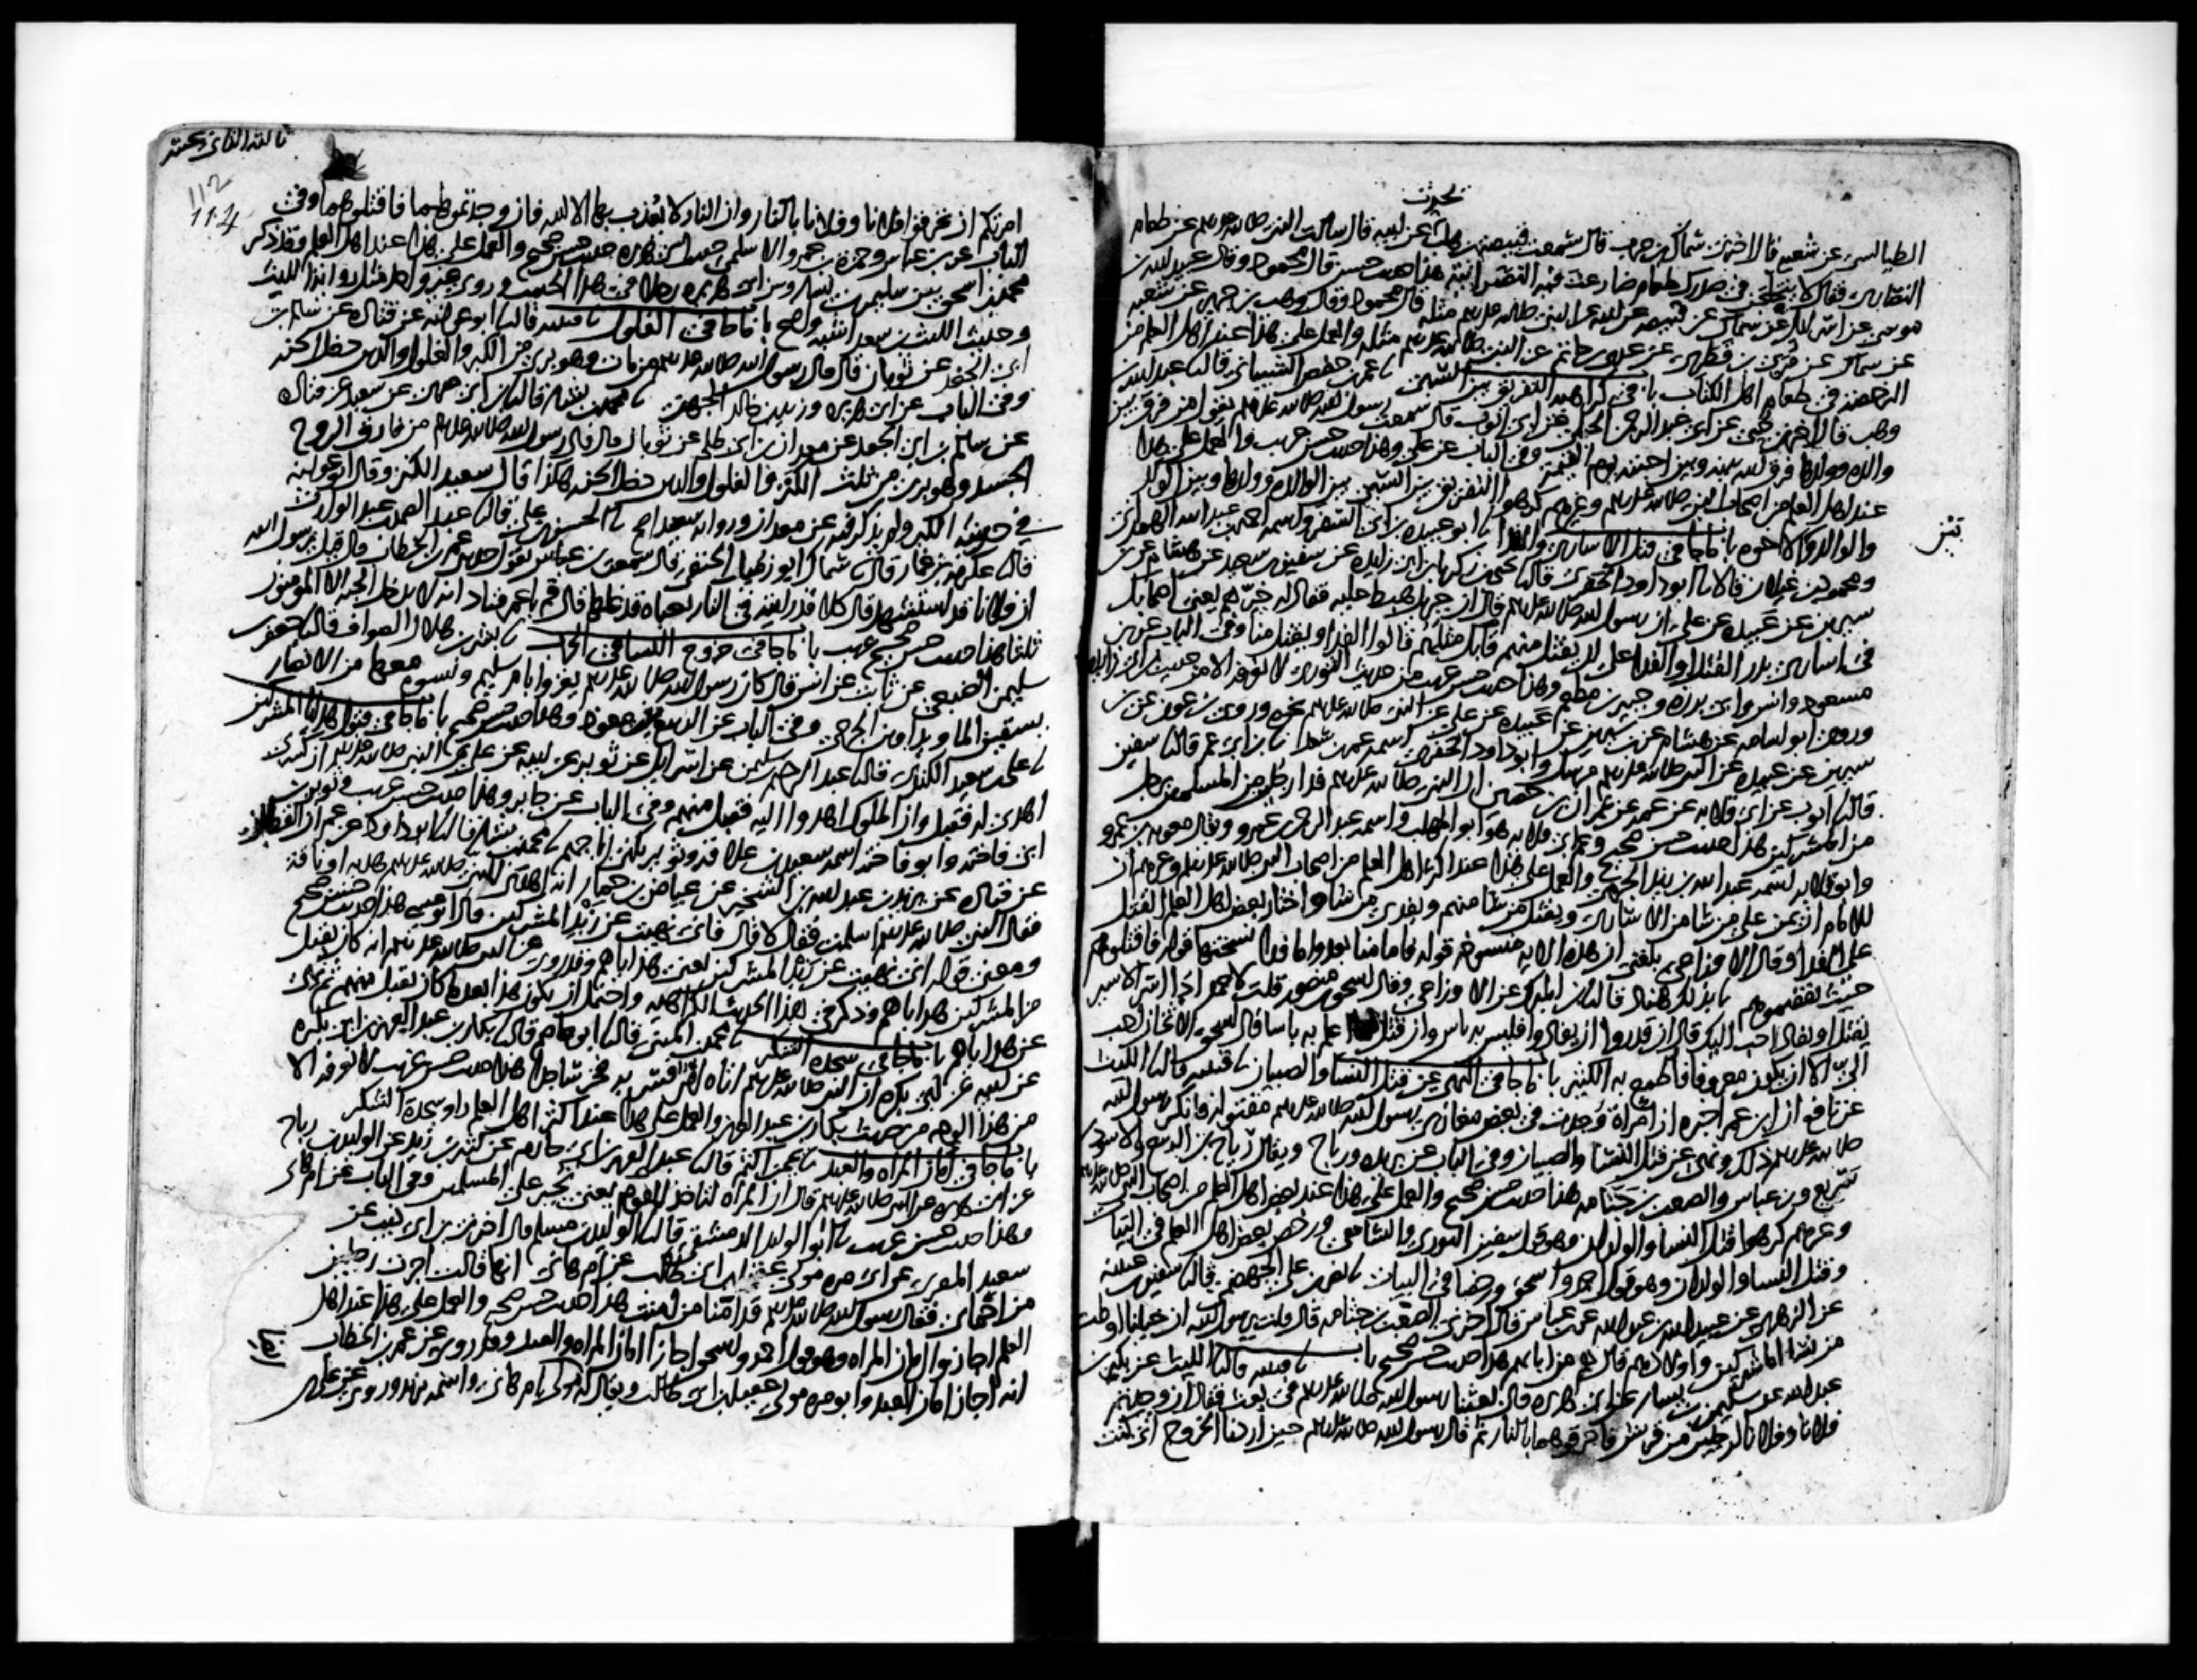 يحدث
الطيالسي عن شعبة قال اخبرني سماك بن حرب قال سمعت قبيصة بن هلب عن ابيه قال سالت النبي صلى الله عليه وسلم عن طعام
النصارى فقال لا يتخلجن في صدرك طعام ضارعت فيه النصرانية هذا حديث حسن قال محمود وقال عبيد الله بن
موسى عن اسرائيل عن سماك عن قبيصة عن ابيه عن النبي صلى الله عليه وسلم مثله قال محمود وقال وهب بن جرير عن شعبة
عن سماك عن مري بن قطري عن عدي بن حاتم عن النبي صلى الله عليه وسلم مثله والعمل على هذا عند اهل العلم من
الرخصة في طعام اهل الكتاب باب في كراهية التفريق بين السبي نا عمر بن حفص الشيباني قال نا عبد الله بن
وهب قال اخبرني حيي عن ابي عبد الرحمن الحبلي عن ابي ايوب قال سمعت رسول الله صلى الله عليه وسلم يقول من فرق بين
والدة وولدها فرق الله بينه وبين احبته يوم القيمة وفي الباب عن علي وهذا حديث حسن غريب والعمل على هذا
عند اهل العلم من اصحاب النبي صلى الله عليه وسلم وغيرهم كرهوا التفريق بين السبي بين الوالدة وولدها وبين الولد
والوالد والاخوة باب ما جا في قتل الاسارى والفدا نا ابو عبيدة بن ابي السفر واسمه احمد بن عبد الله الهمداني
ومحمود بن غيلان قالا نا ابو داود الحفري قال نا يحيى بن زكريا بن ابي زايدة عن سفين بن سعيد عن هشام عن
سيرين عن عبيدة عن علي ان رسول الله صلى الله عليه وسلم قال ان جبريل هبط عليه فقال له خيرهم يعني اصحابك
في اسارى بدر القتل او الفدا على ان يقتل منهم قابل مثلهم قالوا الفدا ويقتل منا وفي الباب عن ابن
مسعود وانس وابي برزة وجبير بن مطعم وهذا حديث حسن غريب من حديث الثوري لا نعرفه الا من حديث ابن ابي زايدة
وروى ابو اسامة عن هشام عن بن سيرين عن عبيدة عن علي عن النبي صلى الله عليه وسلم نحوه وروى بن عون عن بن
سيرين عن عبيدة عن النبي صلى الله عليه وسلم مرسلا وابو داود الحفري اسمه عمر بن سعد نا بن ابي عمر قال نا سفين
قال نا ايوب عن ابي قلابة عن عمه عن عمران بن حصين ان النبي صلى الله عليه وسلم فدا رجلين من المسلمين برجل
من المشركين هذا حديث حسن صحيح وعم ابي قلابة هو ابو المهلب واسمه عبد الرحمن بن عمرو ويقال معوية بن عمرو
وابو قلابة اسمه عبد الله بن زيد الجرمي والعمل على هذا عند اكثر اهل العلم من اصحاب النبي صلى الله عليه وسلم وغيرهم ان
للامام ان يمن على من شا من الاسارى ويقتل من شا منهم ويفدي من شا واختار بعض اهل العلم القتل
على الفدا وقال الاوزاعي بلغني ان هذه الاية منسوخة قوله فاما منا بعد واما فدا نسختها قوله فاقتلوهم
حيث ثقفتموهم نا بذلك هناد قال نا بن المبارك عن الاوزاعي وقال اسحق بن منصور قلت لاحمد اذا اسر الاسير
يقتل او يفادى احب اليك قال ان قدروا ان يفادوا فليس به باس وان قتل فما اعلم به باسا قال اسحق الاثخان احب
الي الا ان يكون معروفا فاطمع به الكثير باب ما جا في النهي عن قتل النسا والصبيان نا قتيبة قال نا الليث
عن نافع ان ابن عمر اخبره ان امراة وجدت في بعض مغازي رسول الله صلى الله عليه وسلم مقتولة فانكر رسول الله
صلى الله عليه وسلم ذلك ونهى عن قتل النسا والصبيان وفي الباب عن بريدة ورباح ويقال رياح بن الربيع والاسود بن
سريع وبن عباس والصعب بن جثامة هذا حديث حسن صحيح والعمل على هذا عند بعض اهل العلم من اصحاب النبي صلى الله عليه وسلم
وغيرهم كرهوا قتل النسا والولدان وهو قول سفين الثوري والشافعي ورخص بعض اهل العلم في البيات
وقتل النسا والولدان وهو قول احمد واسحق ورخصا في البيات نا نصر بن علي الجهضمي قال نا سفين بن عيينة
عن الزهري عن عبيد الله بن عبد الله عن بن عباس قال اخبرني الصعب بن جثامة قال قلت يرسول الله ان خيلنا اوطت
من نسا المشركين واولادهم قال هم من ابايهم هذا حديث حسن صحيح باب نا قتيبة قال نا الليث عن بكير بن
عبد الله عن سليمن بن يسار عن ابي هريرة قال بعثنا رسول الله صلى الله عليه وسلم في بعث فقال ان وجدتم
فلانا وفلانا لرجلين من قريش فاحرقوهما بالنار ثم قال رسول الله صلى الله عليه وسلم حين اردنا الخروج اني كنت
112
امرتكم ان تحرقوا فلانا وفلانا بالنار وان النار لا يعذب بها الا الله فان وجدتموهما فاقتلوهما وفي
الباب عن بن عباس وحمزة بن عمرو الاسلمي حديث ابي هريرة حديث حسن صحيح والعمل على هذا عند اهل العلم وقد ذكر
محمد بن اسحق بين سليمن بن يسار وبين ابي هريرة رجلا في هذا الحديث وروى غير واحد مثل رواية الليث
وحديث الليث بن سعد اشبه واصح باب ما جا في الغلول نا قتيبة قال نا ابو عوانة عن قتادة عن سالم بن
ابي الجعد عن ثوبان قال قال رسول الله صلى الله عليه وسلم من مات وهو بري من الكبر والغلول والدين دخل الجنة
وفي الباب عن ابي هريرة وزيد بن خالد الجهني نا محمد بن بشار قال نا بن ابي عدي عن سعيد عن قتادة
عن سالم بن ابي الجعد عن معدان بن ابي طلحة عن ثوبان قال قال رسول الله صلى الله عليه وسلم من فارق الروح
الجسد وهو بري من ثلث الكنز والغلول والدين دخل الجنة هكذا قال سعيد الكنز وقال ابو عوانة
في حديثه الكبر ولم يذكر فيه عن معدان ورواية سعيد اصح نا الحسن بن علي قال نا عبد الصمد بن عبد الوارث
قال نا عكرمة بن عمار قال نا سماك ابو زميل الحنفي قال سمعت بن عباس يقول حدثني عمر بن الخطاب قال قيل يرسول الله
ان فلانا قد استشهد قال كلا قد رايته في النار بعباة قد غلها قال قم يا عمر فناد انه لا يدخل الجنة الا المومنون
ثلثا هذا حديث حسن صحيح غريب باب ما جا في خروج النسا في الحرب نا بشر بن هلال الصواف قال نا جعفر بن
سليمن الضبعي عن ثابت عن انس قال كان رسول الله صلى الله عليه وسلم يغزوا بام سليم ونسوة معها من الانصار
يسقين الما ويداوين الجرحى وفي الباب عن الربيع بنت معوذ وهذا حديث حسن صحيح باب ما جا في قبول هدايا المشركين
نا علي بن سعيد الكندي قال نا عبد الرحيم بن سليمن عن اسرائيل عن ثوير عن ابيه عن علي عن النبي صلى الله عليه وسلم ان كسرى
اهدى له فقبل وان الملوك اهدوا اليه فقبل منهم وفي الباب عن جابر وهذا حديث حسن غريب وثوير بن
ابي فاختة وابو فاختة اسمه سعيد بن علاقة وثوير يكنى ابا جهم نا محمد بن بشار قال نا ابو داود عن عمران القطان
عن قتادة عن يزيد بن عبد الله بن الشخير عن عياض بن حمار انه اهدى للنبي صلى الله عليه وسلم هدية او ناقة
فقال النبي صلى الله عليه وسلم اسلمت فقال لا قال فاني نهيت عن زبد المشركين قال ابو عيسى هذا حديث حسن صحيح
ومعنى قوله اني نهيت عن زبد المشركين يعني هداياهم وقد روي عن النبي صلى الله عليه وسلم انه كان يقبل
من المشركين هداياهم وذكر في هذا الحديث الكراهية واحتمل ان يكون هذا بعد ما كان يقبل منهم ثم نهى
عن هداياهم باب ما جا في سجدة الشكر نا محمد بن المثنى قال نا ابو عاصم قال نا بكار بن عبد العزيز بن ابي بكرة
عن ابيه عن ابي بكرة ان النبي صلى الله عليه وسلم اتاه امر فسر به فخر ساجدا هذا حديث حسن غريب لا نعرفه الا
من هذا الوجه من حديث بكار بن عبد العزيز والعمل على هذا عند اكثر اهل العلم راوا سجدة الشكر
باب ما جا في امان المراة والعبد نا يحيى بن اكثم قال نا عبد العزيز بن ابي حازم عن كثير بن زيد عن الوليد بن رباح
عن ابي هريرة عن النبي صلى الله عليه وسلم قال ان المراة لتاخذ للقوم يعني تجير على المسلمين وفي الباب عن ام هانئ
وهذا حديث حسن غريب نا ابو الوليد الدمشقي قال نا الوليد بن مسلم قال اخبرني بن ابي ذيب عن
سعيد المقبري عن ابي مرة مولى عقيل بن ابي طالب عن ام هانئ انها قالت اجرت رجلين
من احمائي فقال رسول الله صلى الله عليه وسلم قد امنا من امنت هذا حديث حسن صحيح والعمل على هذا عند اهل
العلم اجازوا امان المراة وهو قول احمد واسحق اجازا امان المراة والعبد وقد روي عن عمر بن الخطاب
انه اجاز امان العبد وابو مرة مولى عقيل بن ابي طالب ويقال له مولى ام هانئ واسمه يزيد وروي عن علي